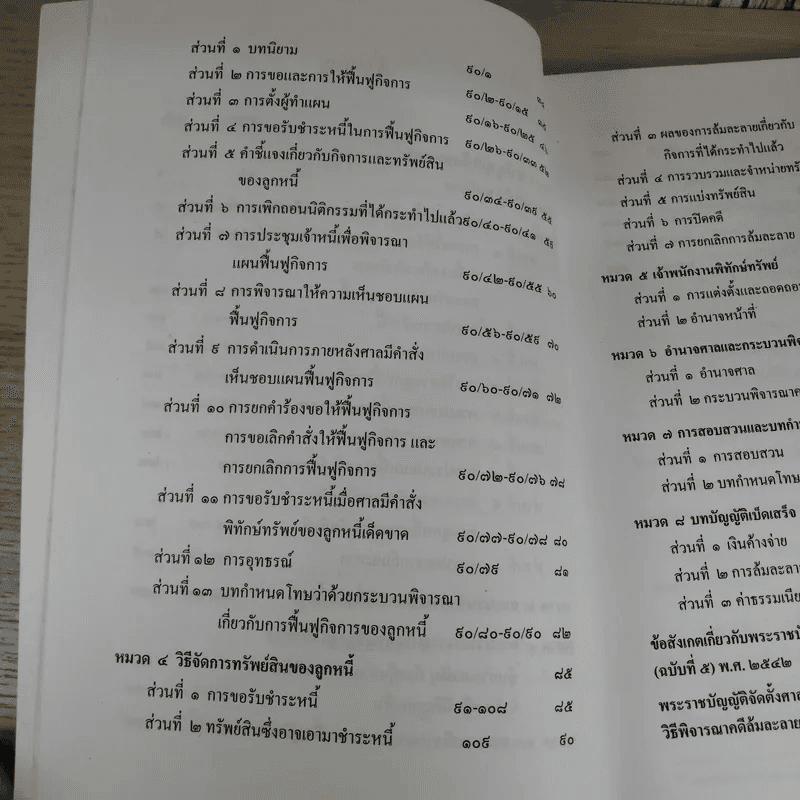 ส่วนที่ ๑ บทนิยาม ๙๐/๑
ส่วนที่ ๒ การขอและการให้ฟื้นฟูกิจการ ๙๐/๒-๙๐/๑๕
ส่วนที่ ๓ การตั้งผู้ทำแผน ๙๐/๑๖-๙๐/๒๕
ส่วนที่ ๔ การขอรับชำระหนี้ในการฟื้นฟูกิจการ ๙๐/๒๖-๙๐/๓๓
ส่วนที่ ๕ คำชี้แจงเกี่ยวกับกิจการและทรัพย์สิน
ของลูกหนี้ ๙๐/๓๔-๙๐/๓๙ ๕๕
ส่วนที่ ๖ การเพิกถอนนิติกรรมที่ได้กระทำไปแล้ว ๙๐/๔๐-๙๐/๔๑ ๕๙
ส่วนที่ ๗ การประชุมเจ้าหนี้เพื่อพิจารณา
แผนฟื้นฟูกิจการ ๙๐/๔๒-๙๐/๕๕ ๖๐
ส่วนที่ ๘ การพิจารณาให้ความเห็นชอบแผน
ฟื้นฟูกิจการ ๙๐/๕๖-๙๐/๕๙ ๗๐
ส่วนที่ ๙ การดำเนินการภายหลังศาลมีคำสั่ง
เห็นชอบแผนฟื้นฟูกิจการ ๙๐/๖๐-๙๐/๗๑ ๗๒
ส่วนที่ ๑๐ การยกคำร้องขอให้ฟื้นฟูกิจการ
การขอเลิกคำสั่งให้ฟื้นฟูกิจการ และ
การยกเลิกการฟื้นฟูกิจการ ๙๐/๗๒-๙๐/๗๖ ๗๘
ส่วนที่ ๑๑ การขอรับชำระหนี้เมื่อศาลมีคำสั่ง
พิทักษ์ทรัพย์ของลูกหนี้เด็ดขาด ๙๐/๗๗-๙๐/๗๘ ๘๐
ส่วนที่ ๑๒ การอุทธรณ์ ๙๐/๗๙ ๘๑
ส่วนที่ ๑๓ บทกำหนดโทษว่าด้วยกระบวนพิจารณา
เกี่ยวกับการฟื้นฟูกิจการของลูกหนี้ ๙๐/๘๐-๙๐/๙๐ ๘๒
หมวด ๔ วิธีจัดการทรัพย์สินของลูกหนี้ ๘๕
ส่วนที่ ๑ การขอรับชำระหนี้ ๙๑-๑๐๘ ๘๕
ส่วนที่ ๒ ทรัพย์สินซึ่งอาจเอามาชำระหนี้ ๑๐๙ ๙๐
ส่วนที่ ๓ ผลของการล้มละลายเกี่ยวกับ
กิจการที่ได้กระทำไปแล้ว
ส่วนที่ ๔ การรวบรวมและจำหน่ายทรั
ส่วนที่ ๕ การแบ่งทรัพย์สิน
ส่วนที่ ๖ การปิดคดี
ส่วนที่ ๗ การยกเลิกการล้มละลาย
หมวด ๕ เจ้าพนักงานพิทักษ์ทรัพย์
ส่วนที่ ๑ การแต่งตั้งและถอดถอน
ส่วนที่ ๒ อำนาจหน้าที่
หมวด ๖ อำนาจศาลและกระบวนพิจ
ส่วนที่ ๑ อำนาจศาล
ส่วนที่ ๒ กระบวนพิจารณาค
หมวด ๗ การสอบสวนและบทกำ
ส่วนที่ ๑ การสอบสวน
ส่วนที่ ๒ บทกำหนดโทษ
หมวด ๘ บทบัญญัติเบ็ดเสร็จ
ส่วนที่ ๑ เงินค้างจ่าย
ส่วนที่ ๒ การล้มละลา
ส่วนที่ ๓ ค่าธรรมเนีย
ข้อสังเกตเกี่ยวกับพระราชบั
(ฉบับที่ ๕) พ.ศ. ๒๕๔๒
พระราชบัญญัติจัดตั้งศาล
วิธีพิจารณาคดีล้มละลาย